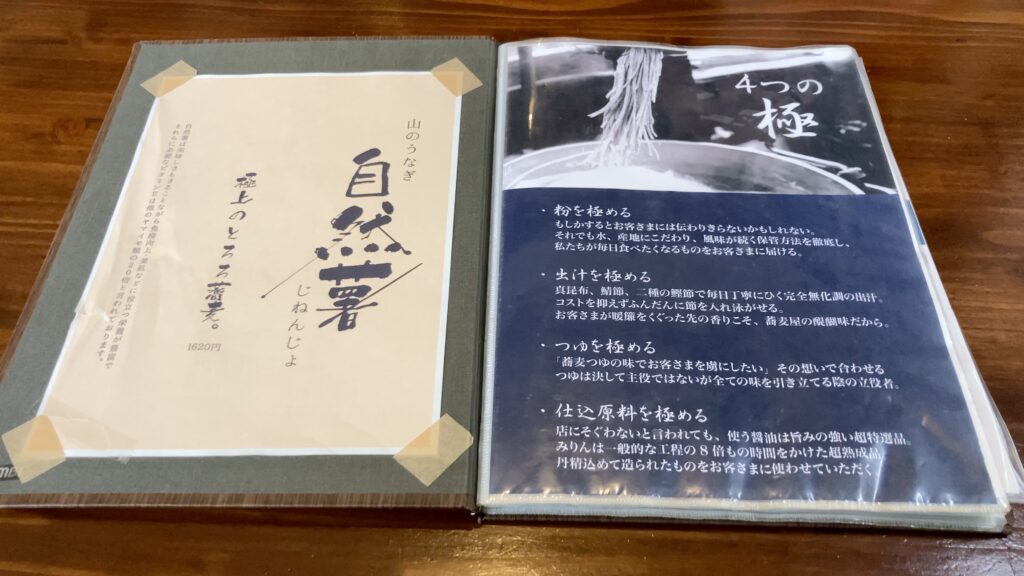 山のうなぎ
自然薯
じねんじょ
極上のとろろ蕎麦。
1620円
4つの
極
・粉を極める
もしかするとお客さまには伝わりきらないかもしれない。
それでも水、産地にこだわり、風味が続く保管方法を徹底し、
私たちが毎日食べたくなるものをお客さまに届ける。
・出汁を極める
真昆布、鯖節、二種の鰹節で毎日丁寧にひく完全無化調の出汁。
コストを抑えずふんだんに節を入れ泳がせる。
お客さまが暖簾をくぐった先の香りこそ、蕎麦屋の醍醐味だから。
・つゆを極める
「蕎麦つゆの味でお客さまを虜にしたい」その想いで合わせる
つゆは決して主役ではないが全ての味を引き立てる陰の立役者。
・仕込原料を極める
店にそぐわないと言われても、使う醤油は旨みの強い超特選品。
みりんは一般的な工程の8倍もの時間をかけた超熟成品
丹精込めて造られたものをお客さまに使わせていただく